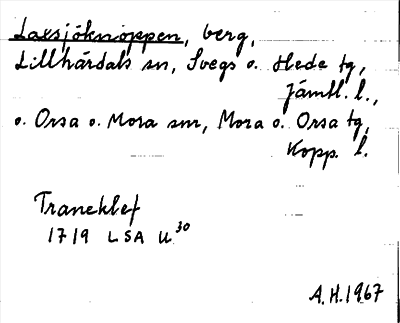 Laxsjöknoppen, berg,
Lillhärdals sn, Svegs o. Hede tg,
Jämtl. l.,
o. Orsa o. Mora snr, Mora o. Orsa tg,
Kopp. l.
Traneklef
1719 LSA U 30
A.H. 1967